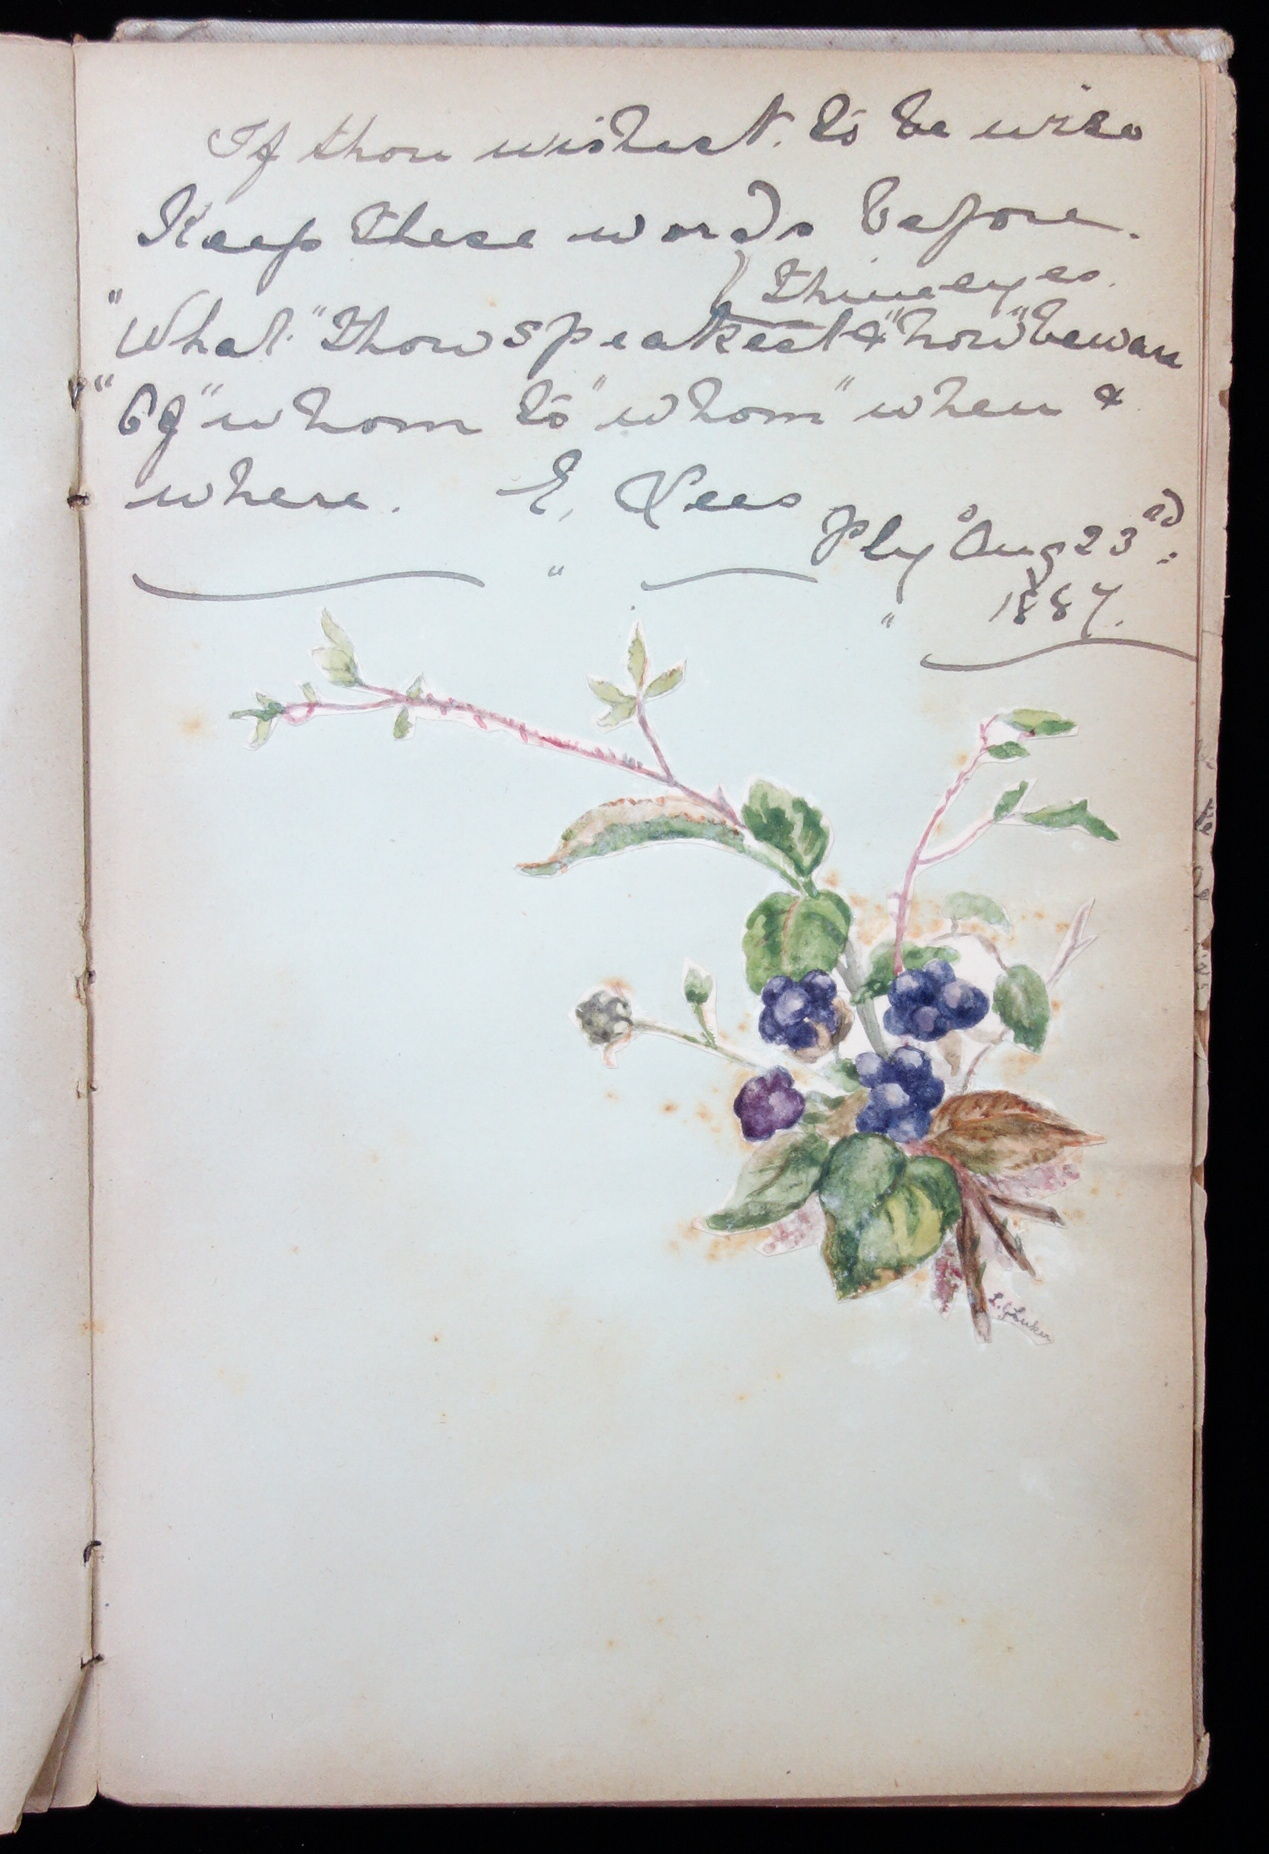 If thou wishest. to be wise
Keep these words before.
thine eyes.
"What" thou speakest & "how" beware
"Of" whom to "whom" when &
where. E, Lees
Ply Aug 23rd:
1887.